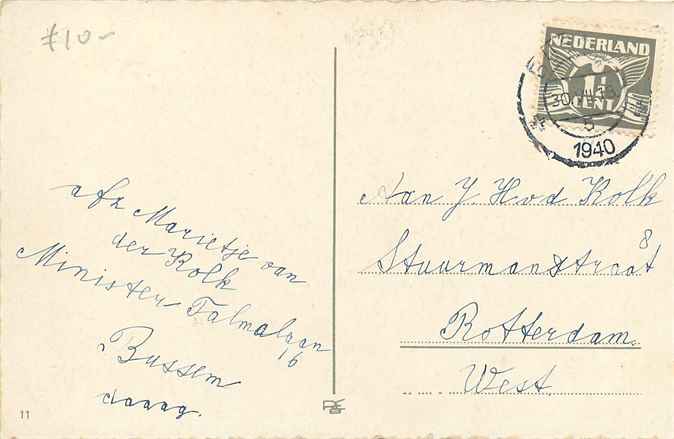 f10-
NEDERLAND
1½
CENT
30.VII.15
5
1940
afz Marietje van
der Kolk
Minister Talmalaan
16
Bussem
daaag.
Aan J H v d Kolk
8
Stuurmanstraat
Rotterdam.
West.
11